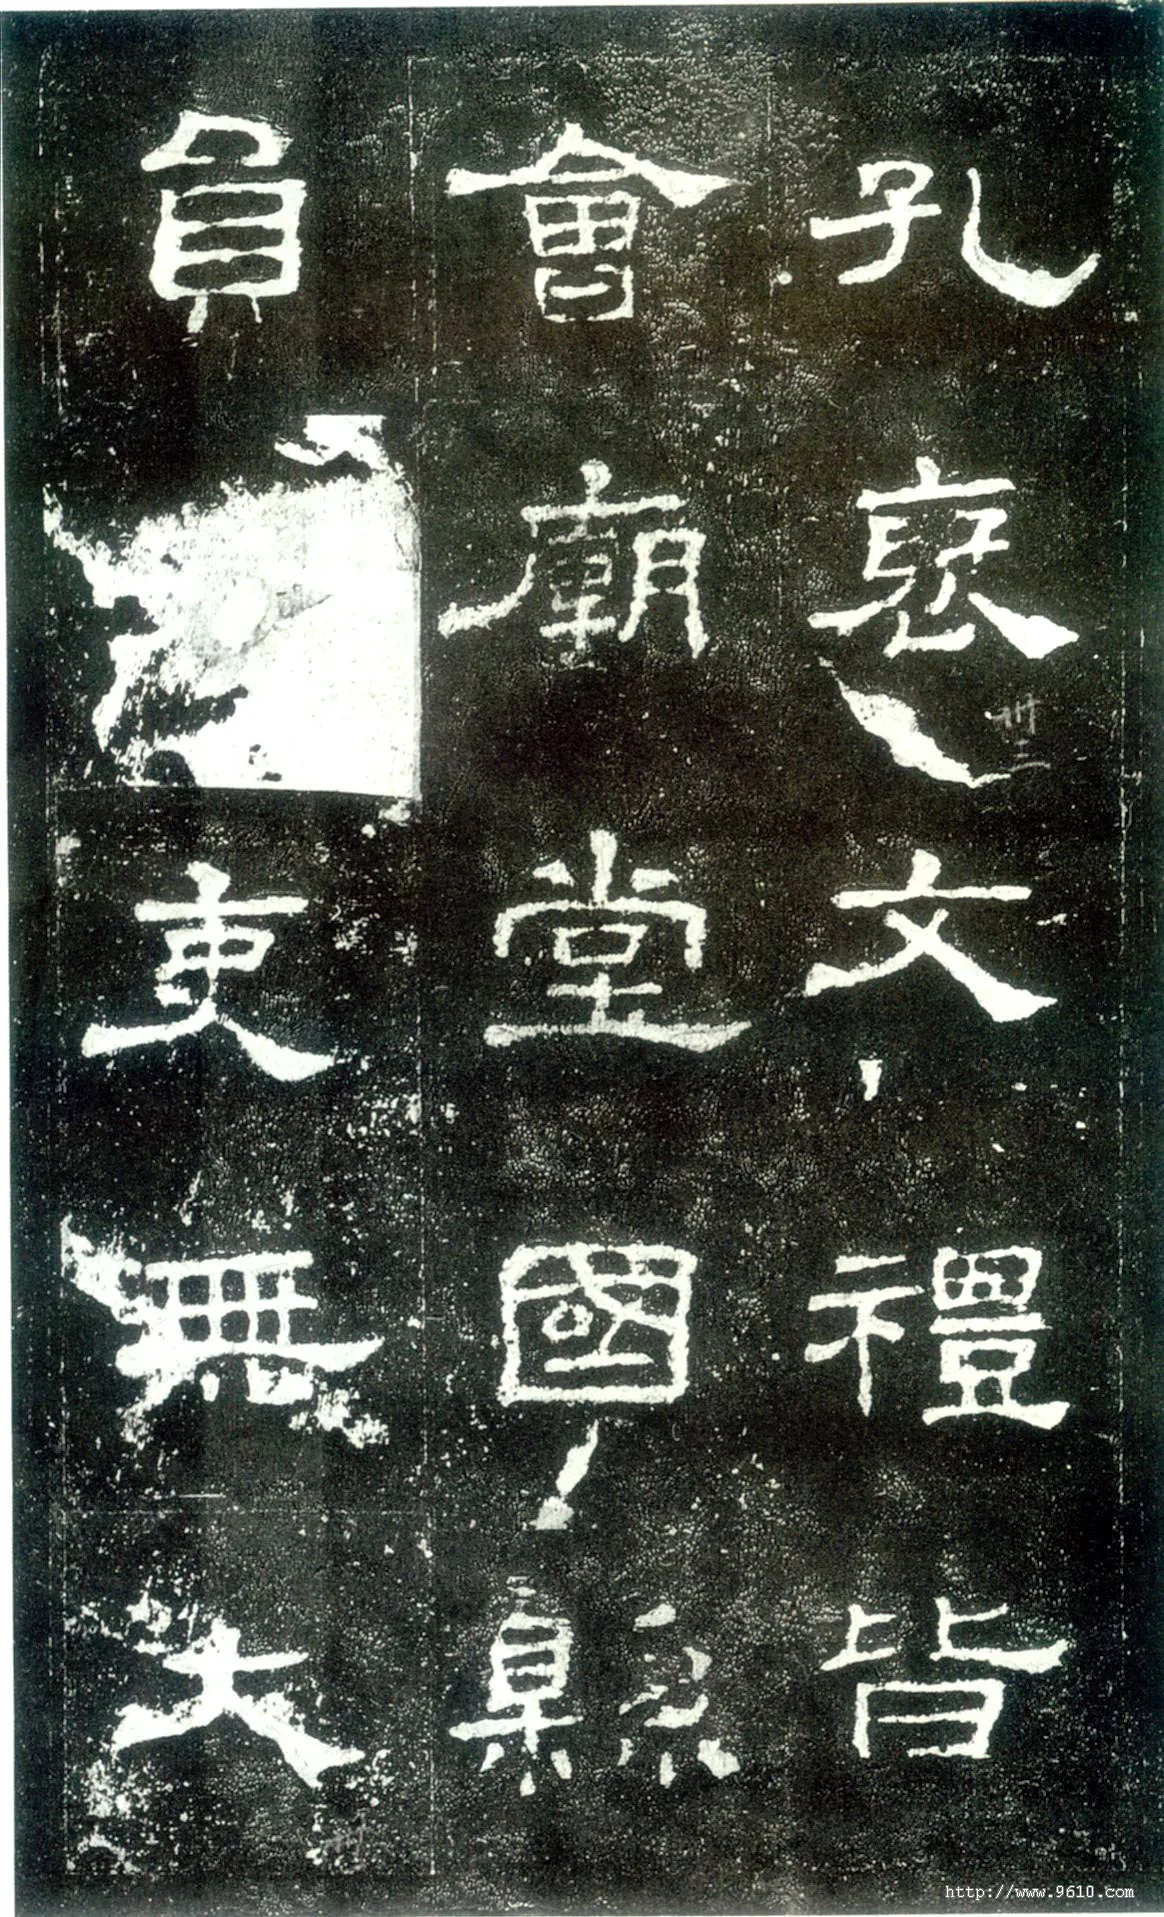 孔褒文禮皆
會廟堂國縣
員吏無大
http://www.9610.com